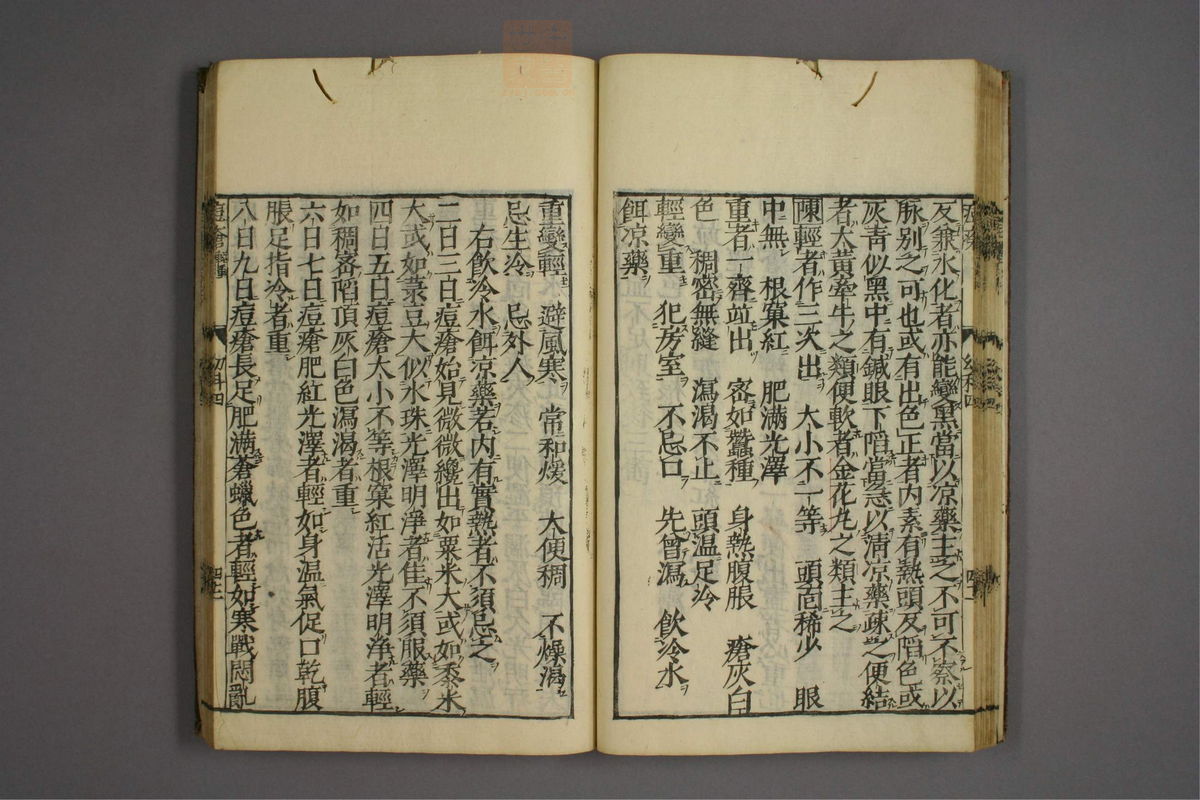 反兼水化者亦能變黑當以凉藥主之不可不察以
脉別之可也或有出色正者内素有熱頭反陷色或
灰青似黑中有鍼眼下陷當急以淸凉藥疎之便結
者大黄牽牛之類便軟者金花丸之類主之
陳輕者作三次出 大小不一等 頭面稀少 眼
中無 根窠紅 肥滿光澤
重者一齊竝出 宻如蠶種 身熱腹脹 瘡灰白
色 稠密無縫 瀉渴不止 頭温足冷
輕變重 犯房室 不忌口 先曾瀉 飲冷水
餌凉藥
重變輕 避風寒 常和煖 大便稠 不燥渴
忌生冷 忌外人
右飲冷水餌凉藥若内有實熱者不須忌之
二日三日痘瘡始見微微纔出如粟米大或如黍米
大或如菉豆大似水珠光澤明淨者佳不須服藥
四日五日痘瘡大小不等根窠紅活光澤明淨者輕
如稠宻陷頂灰白色瀉渴者重
六日七日痘瘡肥紅光澤者輕如身温氣促口乾腹
脹足指冷者重
八日九日痘瘡長足肥滿蒼蠟色者輕如寒戰悶亂
痘瘡
幼科四